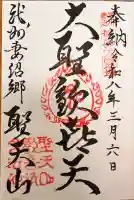 奉納 令和八年三月六日
大聖歓喜天
武州妻沼郷
聖天山